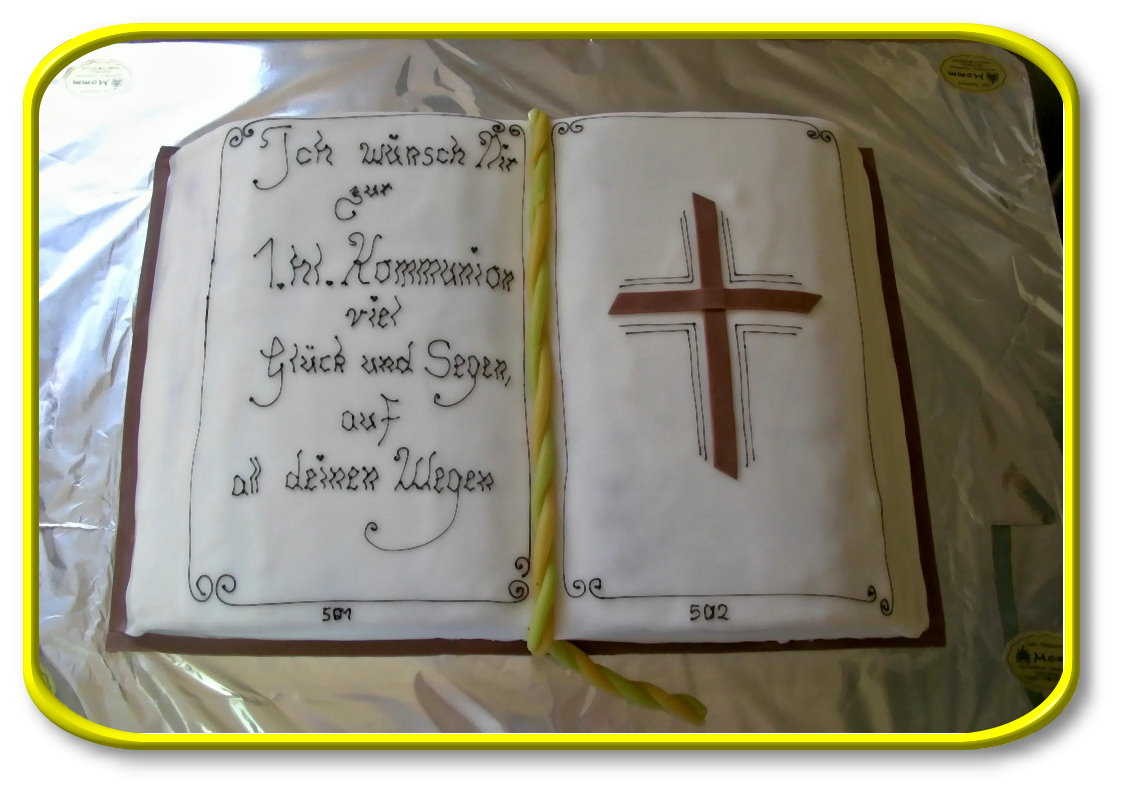 Ich wünsch Dir
zur
1. hl. Kommunion
viel
Glück und Segen,
auf
all deinen Wegen
501
502
Momm
Momm
Mom